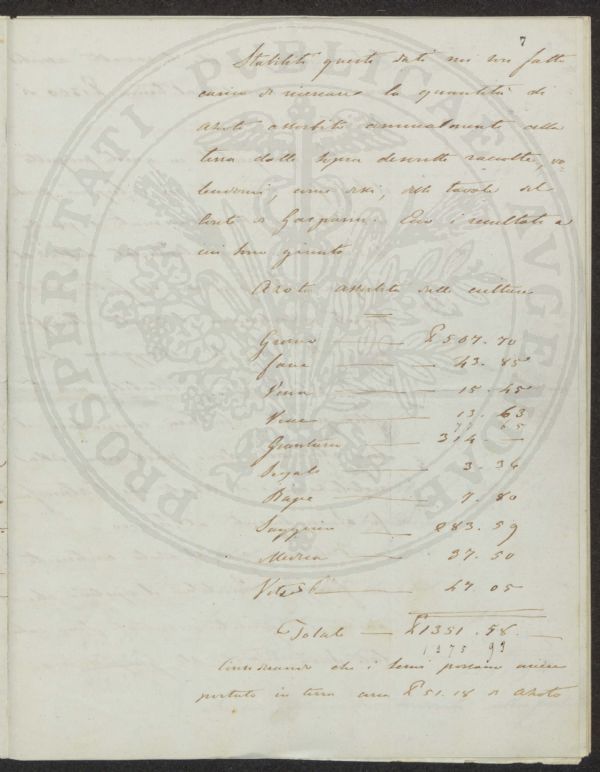 7
Stabiliti questi dati mi son fatto
carico di ricercare la quantità di
azoto assorbito annualmente alla
terra dalle sopra descritte raccolte, va-
lendomi, come dissi, delle tavole del
Conte di Gasparin. Ecco i resultati a
cui sono giunto
Azoto assorbito dalle culture
Grano £ 507. 70
fave 43. 85
Vena 15. 45
Vecce 13. 63
77 65
Granturco 314. —
Segale 3. 34
Rape 7. 80
Saggina 283. 59
Medica 37. 50
Viti 47 05
Totale £ 1351. 58.
1375 93
Considerando che i semi possono avere
portato in terra circa £ 51. 18 di azoto
PROSPERITATI PVBLICAE AVGENDAE